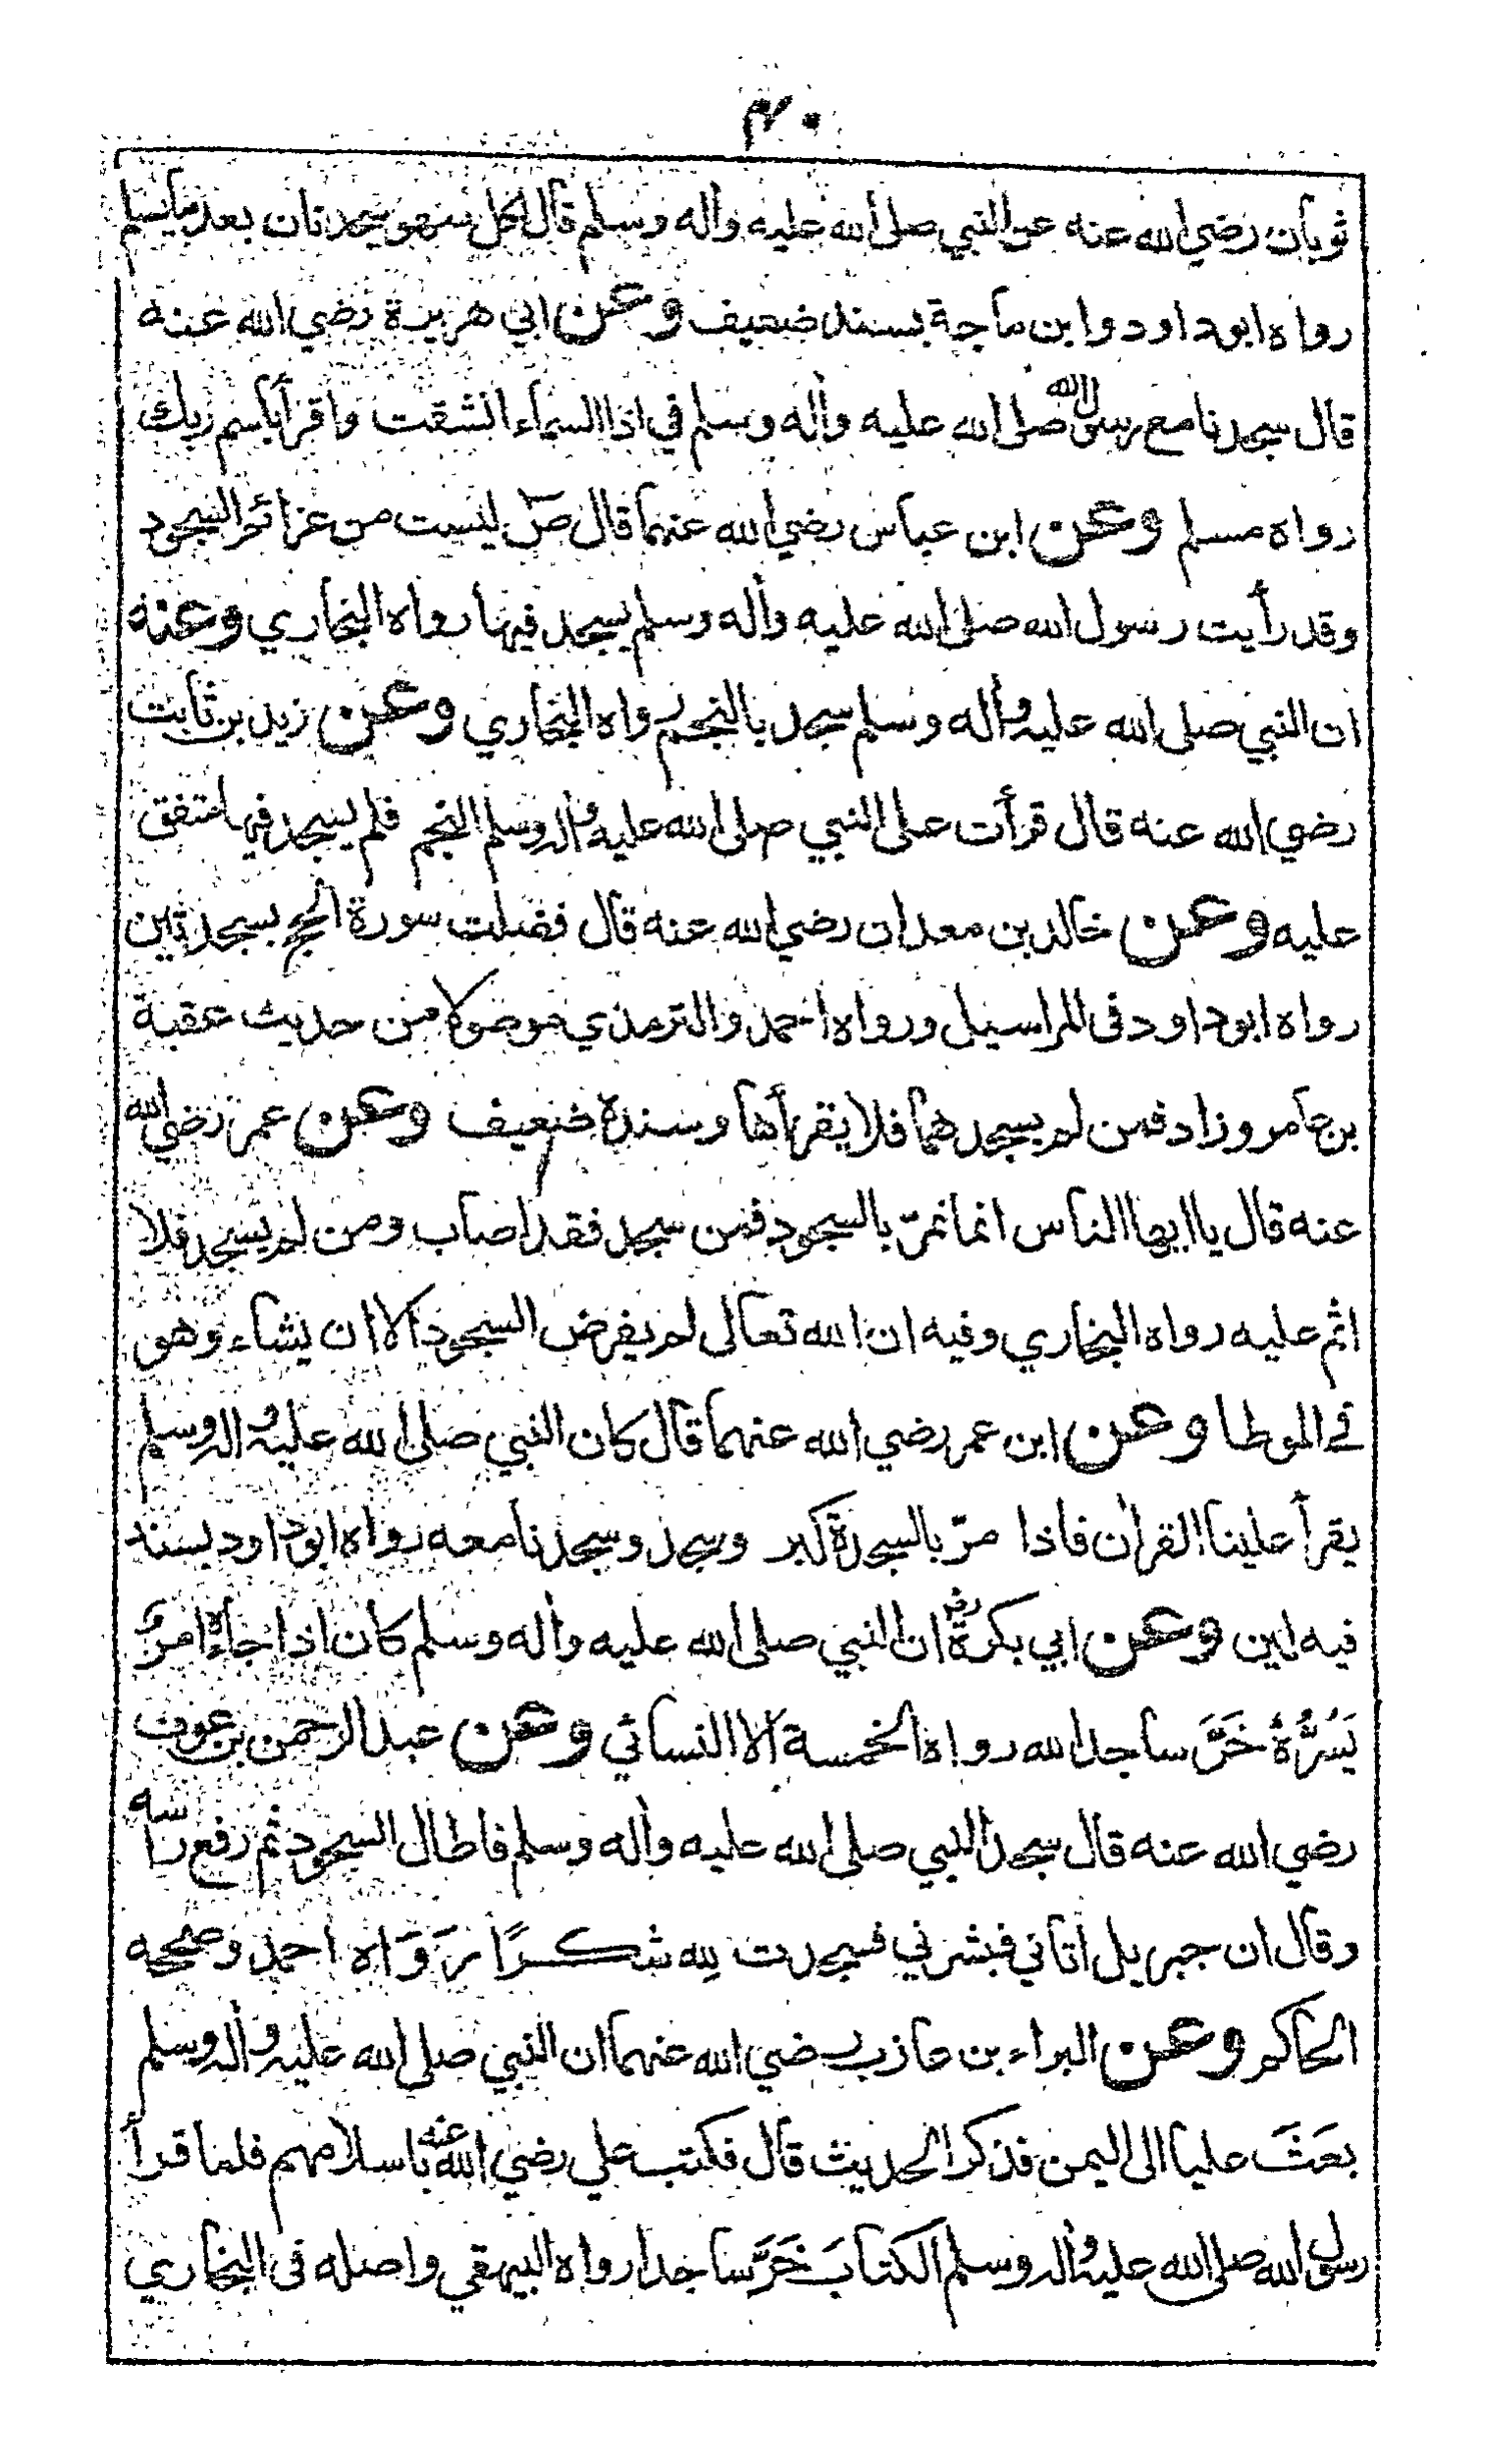 ٤٠
ثوبان رضي الله عنه عن النبي صلى الله عليه وأله وسلم قال لكل سهو سجدتان بعد ما يسلم
رواه ابوداود وابن ماجة بسند ضعيف وعن ابي هريرة رضي الله عنه
قال سجدنا مع رسول الله صلى الله عليه وأله وسلم في اذا السماء انشقت واقرأ باسم ربك
رواه مسلم وعن ابن عباس رضي الله عنهما قال صٓ ليست من عزائم السجود
وقد رأيت رسول الله صلى الله عليه وأله وسلم يسجد فيها رواه البخاري وعنه
ان النبي صلى الله عليه وأله وسلم سجد بالنجم رواه البخاري وعن زيد بن ثابت
رضي الله عنه قال قرأت على النبي صلى الله عليه وأله وسلم النجم فلم يسجد فيها متفق
عليه وعن خالد بن معدان رضي الله عنه قال فضلت سورة الحج بسجدتين
رواه ابوداود فى المراسيل ورواه احمد والترمذي موصولا من حديث عقبة
بن عامر وزاد فمن لم يسجدهما فلا يقرأها وسنده ضعيف وعن عمر رضي الله
عنه قال يا ايها الناس انما نمرّ بالسجود فمن سجد فقد اصاب ومن لم يسجد فلا
اثم عليه رواه البخاري وفيه ان الله تعالى لم يفرض السجود الا ان يشاء وهو
في الموطا وعن ابن عمر رضي الله عنهما قال كان النبي صلى الله عليه وأله وسلم
يقرأ علينا القرأن فاذا مرّ بالسجدة كبر وسجد وسجدنا معه رواه ابوداود بسند
فيه لين وعن ابي بكرة رض ان النبي صلى الله عليه وأله وسلم كان اذا جاءه امرٌ
يَسُرُّهُ خَرَّ ساجدا لله رواه الخمسة الا النسائي وعن عبد الرحمن بن عوف
رضي الله عنه قال سجد النبي صلى الله عليه وأله وسلم فاطال السجود ثم رفع راسه
وقال ان جبريل اتاني فبشرني فسجدت لله شكرًا رَوَاه احمد وصححه
الحاكم وعن البراء بن عازب رضي الله عنهما ان النبي صلى الله عليه وأله وسلم
بعَثَ عليا الى اليمن فذكر الحديث قال فكتب علي رضي الله عنه باسلامهم فلما قرأ
رسول الله صلى الله عليه وأله وسلم الكتابَ خَرَّ ساجدا رواه البيهقي واصله فى البخاري